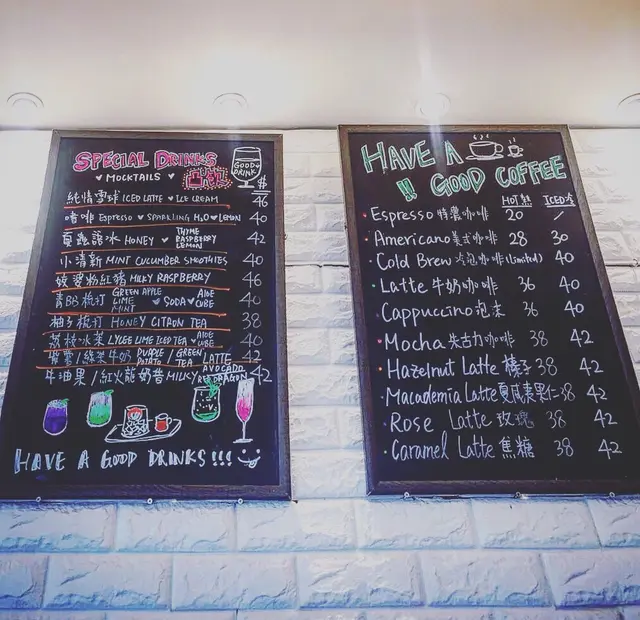 SPECIAL DRINKS
♥ MOCKTAILS ♥
GOOD DRINK
$
純情雪球 ICED LATTE ♥ ICE CREAM 46
啫啡 ESPRESSO ♥ SPARKLING H₂O ♥ LEMON 40
夏蟲語冰 HONEY ♥ THYME RASPBERRY LEMON 42
小清新 MINT CUCUMBER SMOOTHIES 40
粉紅豬 MILKY RASPBERRY 46
青BB梳打 GREEN APPLE LIME MINT ♥ SODA ♥ ALOE CUBE 40
柚子梳打 HONEY CITRON TEA 38
荔枝冰茶 LYCEE LIME ICED TEA ♥ ALOE CUBE 40
紫薯/綠茶牛奶 PURPLE POTATO / GREEN TEA LATTE 42
牛油果/紅火龍奶昔 MILKY AVOCADO RED DRAGON 42
HAVE A GOOD DRINKS!!!
HAVE A
!! GOOD COFFEE
HOT熱 ICED冷
Espresso 特濃咖啡 20 /
Americano 美式咖啡 28 30
Cold Brew 冷泡咖啡 (Limited) 40
Latte 牛奶咖啡 36 40
Cappuccino 泡沫 36 40
Mocha 朱古力咖啡 38 42
Hazelnut Latte 榛子 38 42
Macademia Latte 夏威夷果仁 38 42
Rose Latte 玫瑰 38 42
Caramel Latte 焦糖 38 42